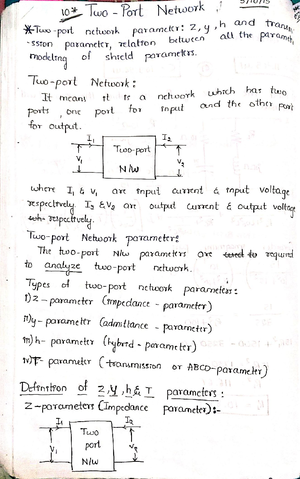 10* Two-Port Network
*Two-port network parameter: Z, y, h and transmi
-ssion parameter, relation between all the parameter,
modeling of shield parameters.
Two-port Network:
It means it is a network which has two
ports, one port for input and the other port
for output.
I₁ I₂
V₁ Two-port N/W V₂
where I₁ & V₁ are input current & input voltage
respectively. I₂ & V₂ are output current & output voltage
respectively.
Two-port Network parameters
The two-port N/w parameters are used to required
to analyze two-port network.
Types of two-port network parameters:
i) Z-parameter (impedance-parameter)
ii) y-parameter (admittance-parameter)
iii) h-parameter (hybrid-parameter)
iv) T-parameter (transmission or ABCD-parameter)
Definition of Z, y, h & T parameters:
Z-parameters (Impedance parameter):-
I₁ I₂
V₁ Two port N/W V₂